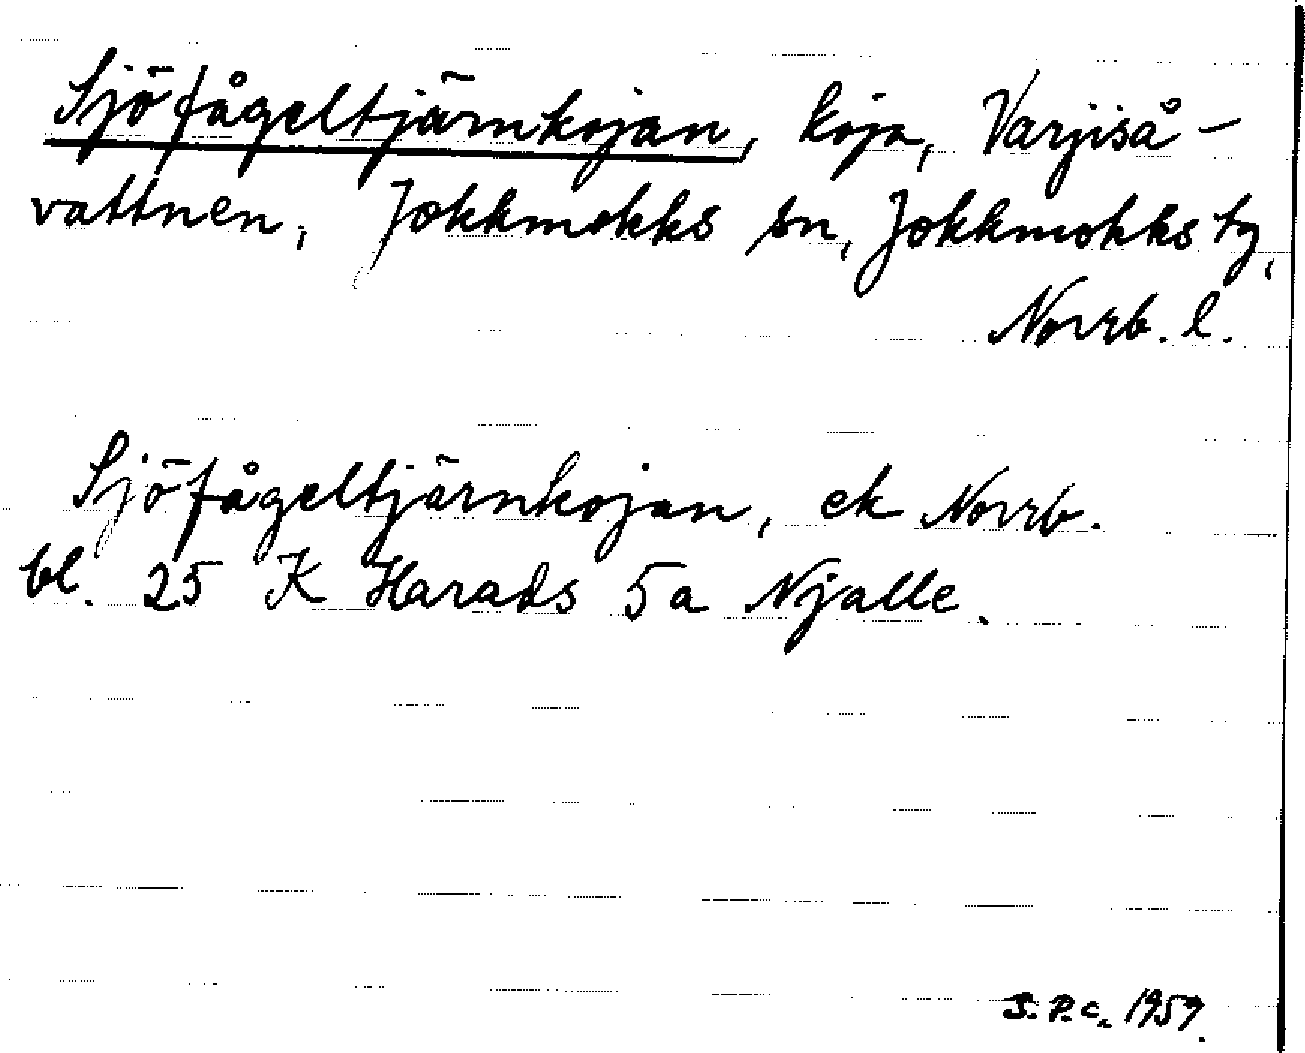 Sjöfågeltjärnkojan, koja, Varjiså-
vattnen, Jokkmokks sn, Jokkmokks tg,
Norrb. l.
Sjöfågeltjärnkojan, ek Norrb.
bl. 25 K Harads 5a Njalle.
S.P.c. 1959.